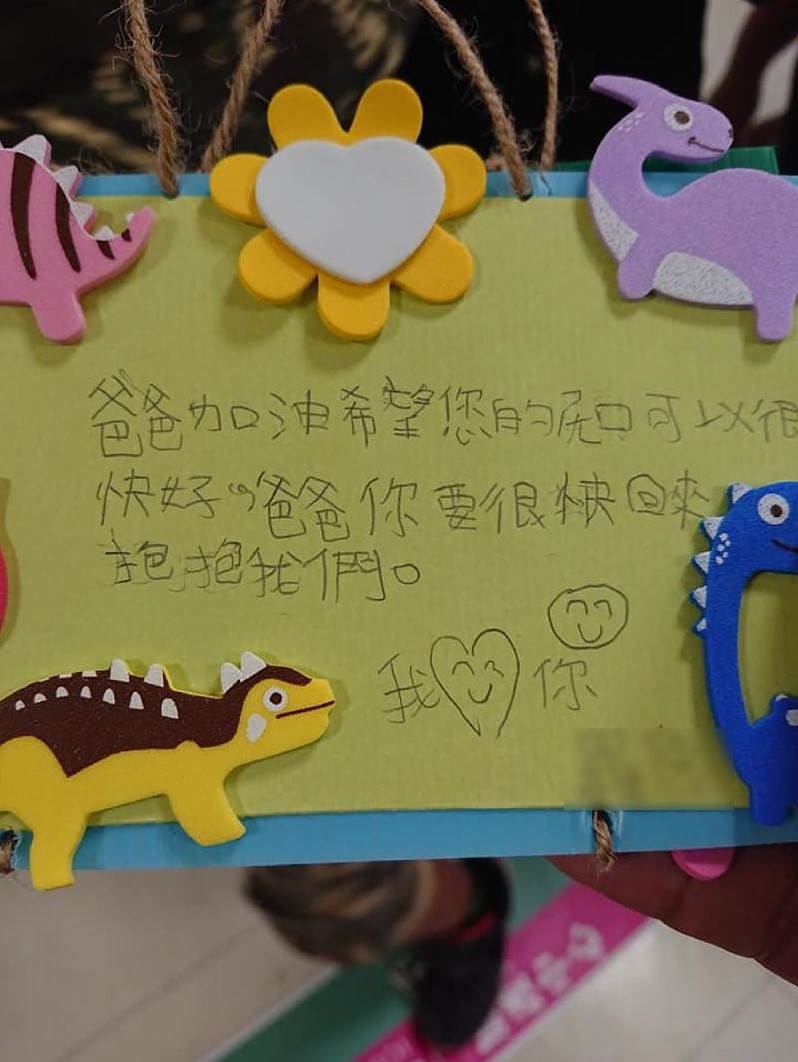 爸爸加油希望您的屁口可以很
快好“爸爸你要很快回來
抱抱我們。
我你